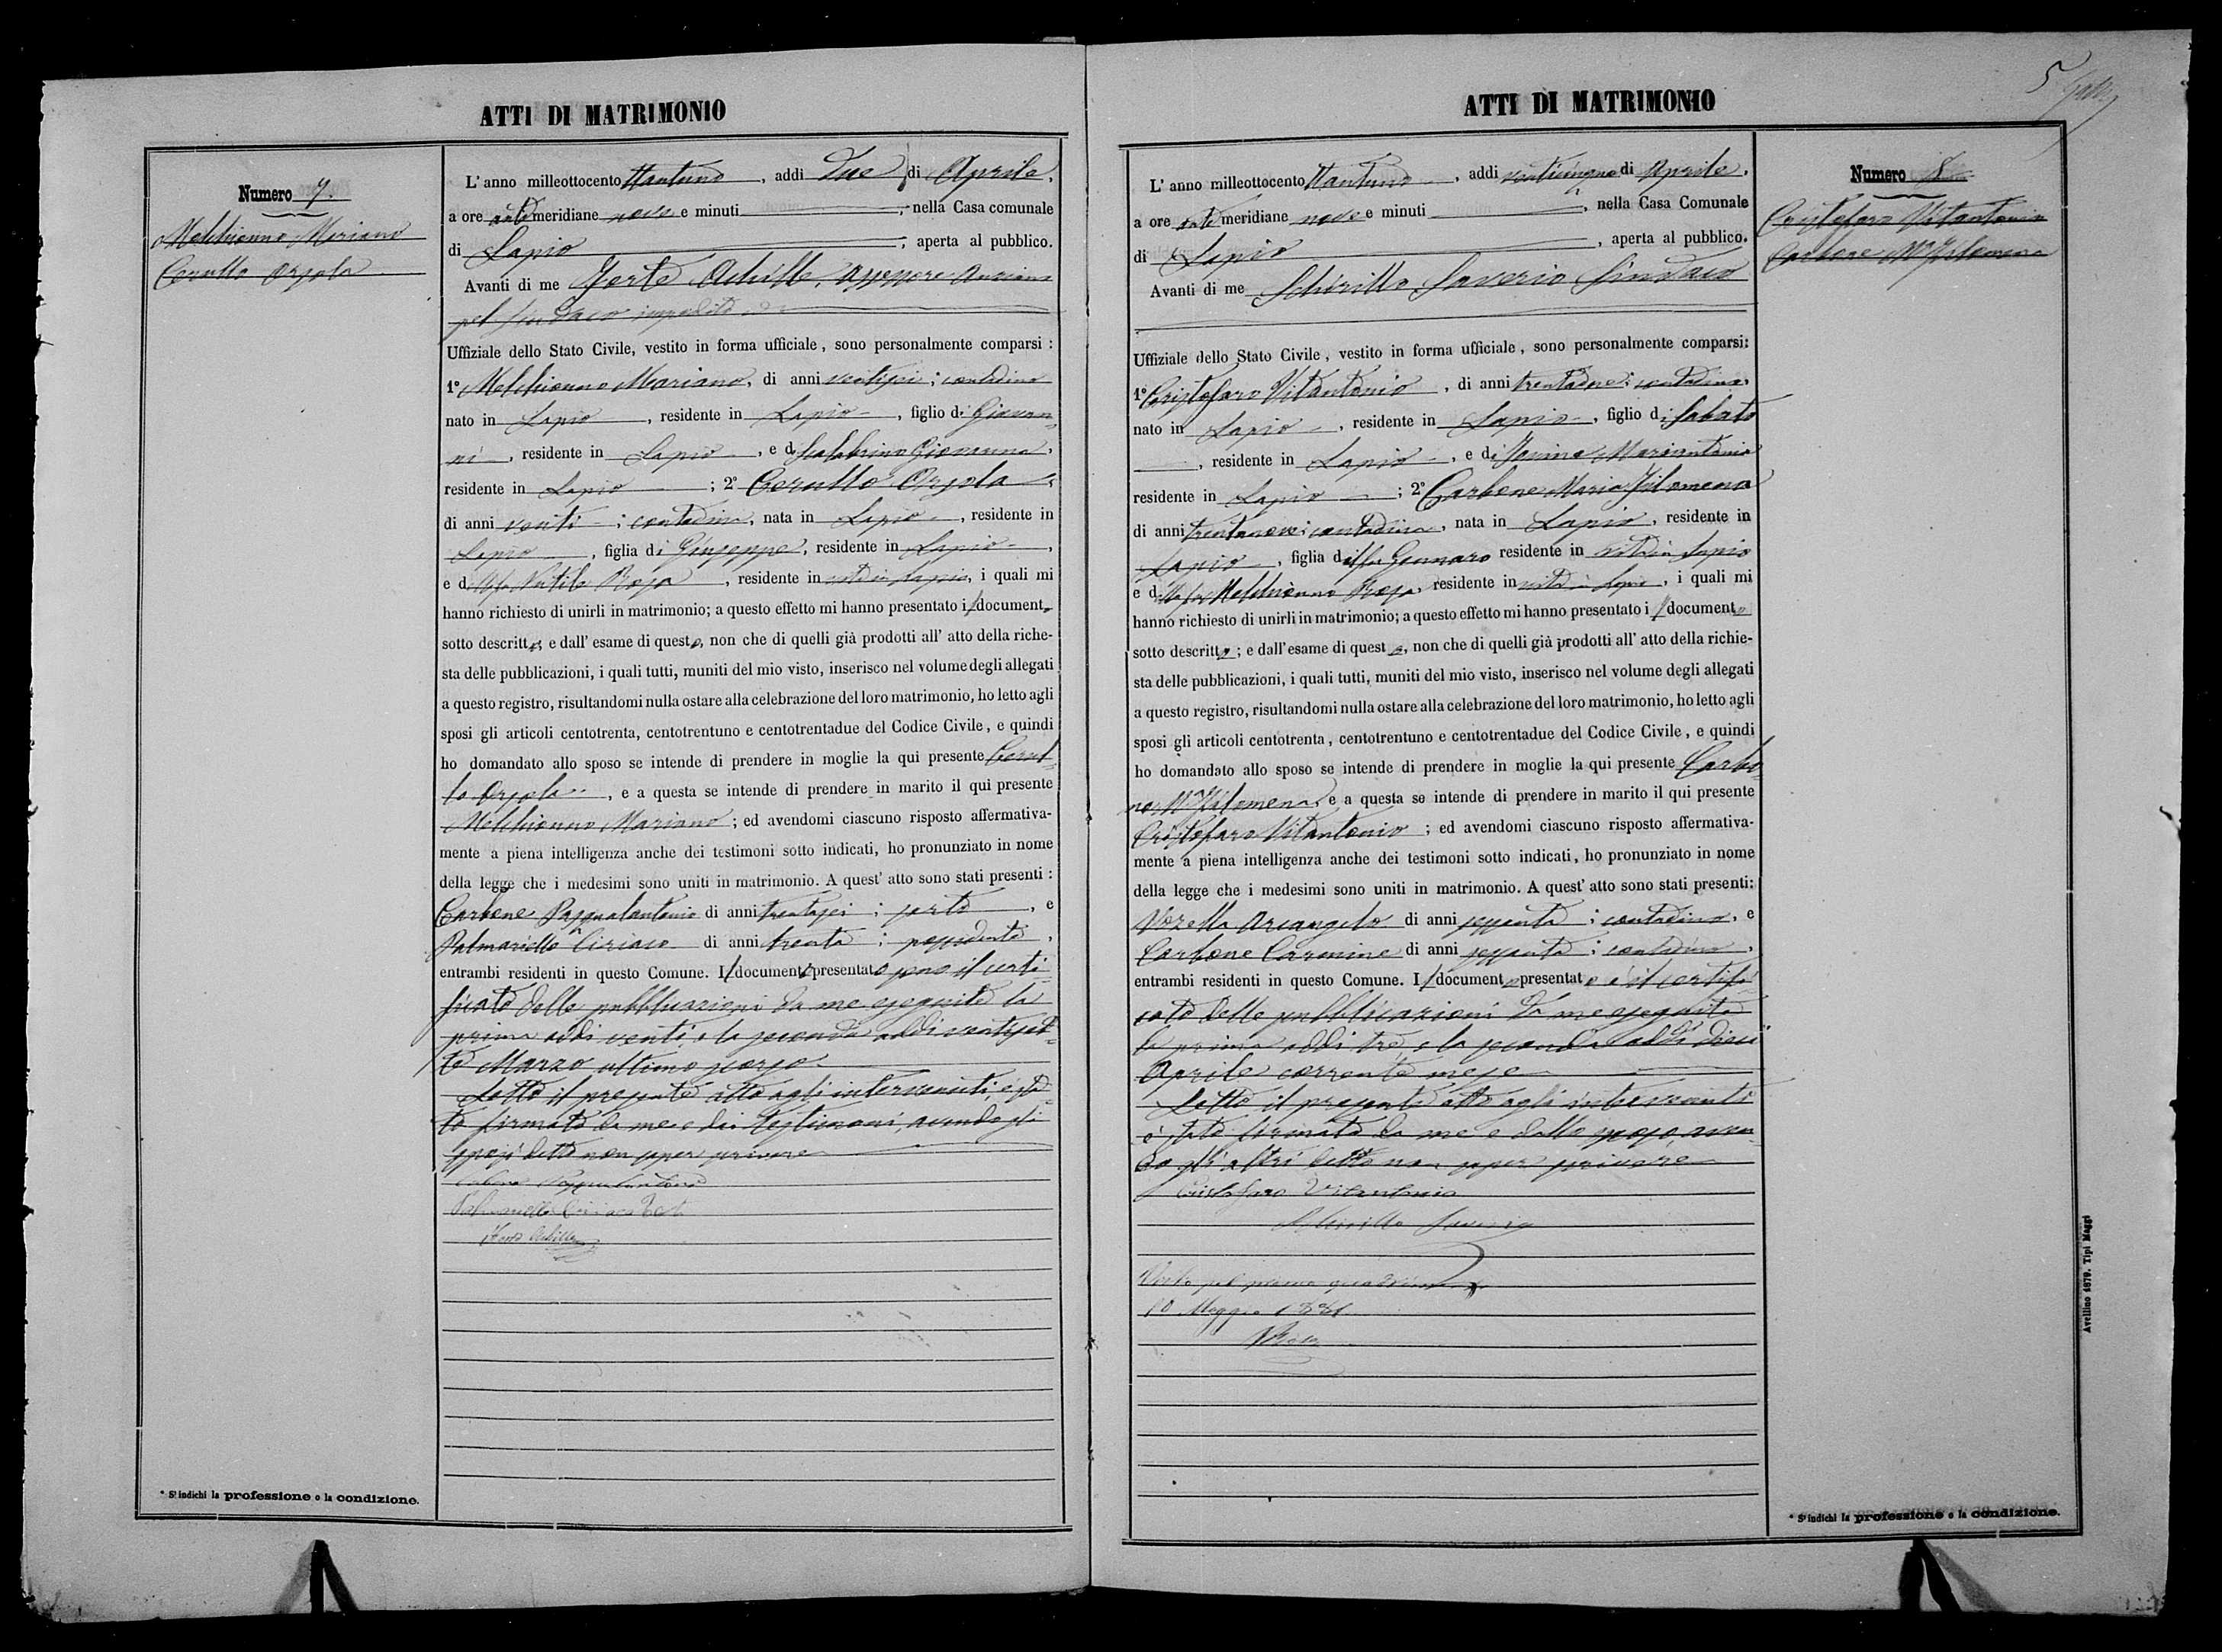 ATTI DI MATRIMONIO
Numero 7.
Melchionno Mariano
Cerullo Orsola
L'anno milleottocento ttantuno, addi due di Aprile,
a ore anti meridiane nove e minuti, nella Casa comunale
di Lapio, aperta al pubblico.
Avanti di me Forte Achille, Assessore Anziano
pel Sindaco impedito
Uffiziale dello Stato Civile, vestito in forma ufficiale, sono personalmente comparsi:
1° Melchionno Mariano, di anni ventisei; contadino
nato in Lapio, residente in Lapio, figlio di Giovan-
ni, residente in Lapio, e di Scalabrino Giovanna,
residente in Lapio; 2° Cerullo Orsola,
di anni venti; contadina, nata in Lapio, residente in
Lapio, figlia di Giuseppe, residente in Lapio,
e d Rosa, residente in vita in Lapio, i quali mi
hanno richiesto di unirli in matrimonio; a questo effetto mi hanno presentato i l document o
sotto descritt o; e dall'esame di quest o, non che di quelli già prodotti all'atto della riche-
sta delle pubblicazioni, i quali tutti, muniti del mio visto, inserisco nel volume degli allegati
a questo registro, risultandomi nulla ostare alla celebrazione del loro matrimonio, ho letto agli
sposi gli articoli centotrenta, centotrentuno e centotrentadue del Codice Civile, e quindi
ho domandato allo sposo se intende di prendere in moglie la qui presente Cerul-
lo Orsola, e a questa se intende di prendere in marito il qui presente
Melchionno Mariano; ed avendomi ciascuno risposto affermativa-
mente a piena intelligenza anche dei testimoni sotto indicati, ho pronunziato in nome
della legge che i medesimi sono uniti in matrimonio. A quest'atto sono stati presenti:
Carbone Pasqualantonio di anni trentasei; sarto, e
Palmariello Ciriaco di anni trenta; possidente,
entrambi residenti in questo Comune. I l document o presentat o sono il certi-
ficato delle pubblicazioni da me eseguite la
prima addi venti, e la seconda addi ventiset-
te Marzo ultimo scorso
Letto il presente atto agli intervenuti, è sta-
to firmato da me e dai testimoni, avendo gli
sposi detto non saper scrivere
Carbone Pasqualantonio
Palmariello Ciriaco Test.
Forte Achille
* S'indichi la professione o la condizione.
ATTI DI MATRIMONIO
5
Numero 8
Cristofaro Vitantonio
Carbone Mª Filomena
L'anno milleottocento ttantuno, addi venticinque di Aprile,
a ore anti meridiane nove e minuti, nella Casa Comunale
di Lapio, aperta al pubblico.
Avanti di me Schirillo Saverio Sindaco
Uffiziale dello Stato Civile, vestito in forma ufficiale, sono personalmente comparsi:
1° Cristofaro Vitantonio, di anni; contadino,
nato in Lapio, residente in Lapio, figlio di Sabato
, residente in Lapio, e di Iovino Mariantonia
residente in Lapio; 2° Carbone Maria Filomena
di anni trentanove; contadina, nata in Lapio, residente in
Lapio, figlia del fu Gennaro residente in vita in Lapio
e della fu Melchionno Rosa, residente in vita in Lapio, i quali mi
hanno richiesto di unirli in matrimonio; a questo effetto mi hanno presentato i l document o
sotto descritt o; e dall'esame di quest o, non che di quelli già prodotti all'atto della richie-
sta delle pubblicazioni, i quali tutti, muniti del mio visto, inserisco nel volume degli allegati
a questo registro, risultandomi nulla ostare alla celebrazione del loro matrimonio, ho letto agli
sposi gli articoli centotrenta, centotrentuno e centotrentadue del Codice Civile, e quindi
ho domandato allo sposo se intende di prendere in moglie la qui presente Carbo-
ne Mª Filomena, e a questa se intende di prendere in marito il qui presente
Cristofaro Vitantonio; ed avendomi ciascuno risposto affermativa-
mente a piena intelligenza anche dei testimoni sotto indicati, ho pronunziato in nome
della legge che i medesimi sono uniti in matrimonio. A quest'atto sono stati presenti:
Vozella Arcangelo di anni sessanta; contadino, e
Carbone Carmine di anni sessanta; contadino,
entrambi residenti in questo Comune. I l document o presentat o è il certifi-
cato delle pubblicazioni da me eseguite
la prima addi tre, e la seconda addi dieci
Aprile corrente mese
Letto il presente atto agli intervenuti
è stato firmato da me e dallo sposo, aven-
do gli altri detto non saper scrivere
Cristofaro Vitantonio
Schirillo Saverio
Visto pel primo quadrimestre
10 Maggio 1881
* S'indichi la professione o la condizione.
Avellino 1879. Tipi Maggi